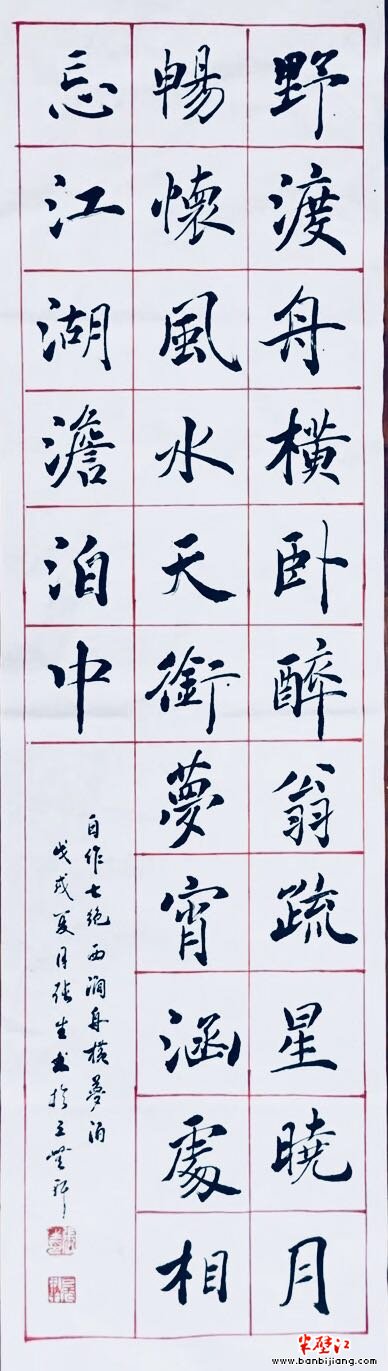 野渡舟橫卧醉翁疏星曉月
暢懷風水天銜夢宵涵處相
忘江湖澹泊中
自作七绝西涧舟横夢泊
戊戌夏月張生书於
半壁江
www.banbijiang.com